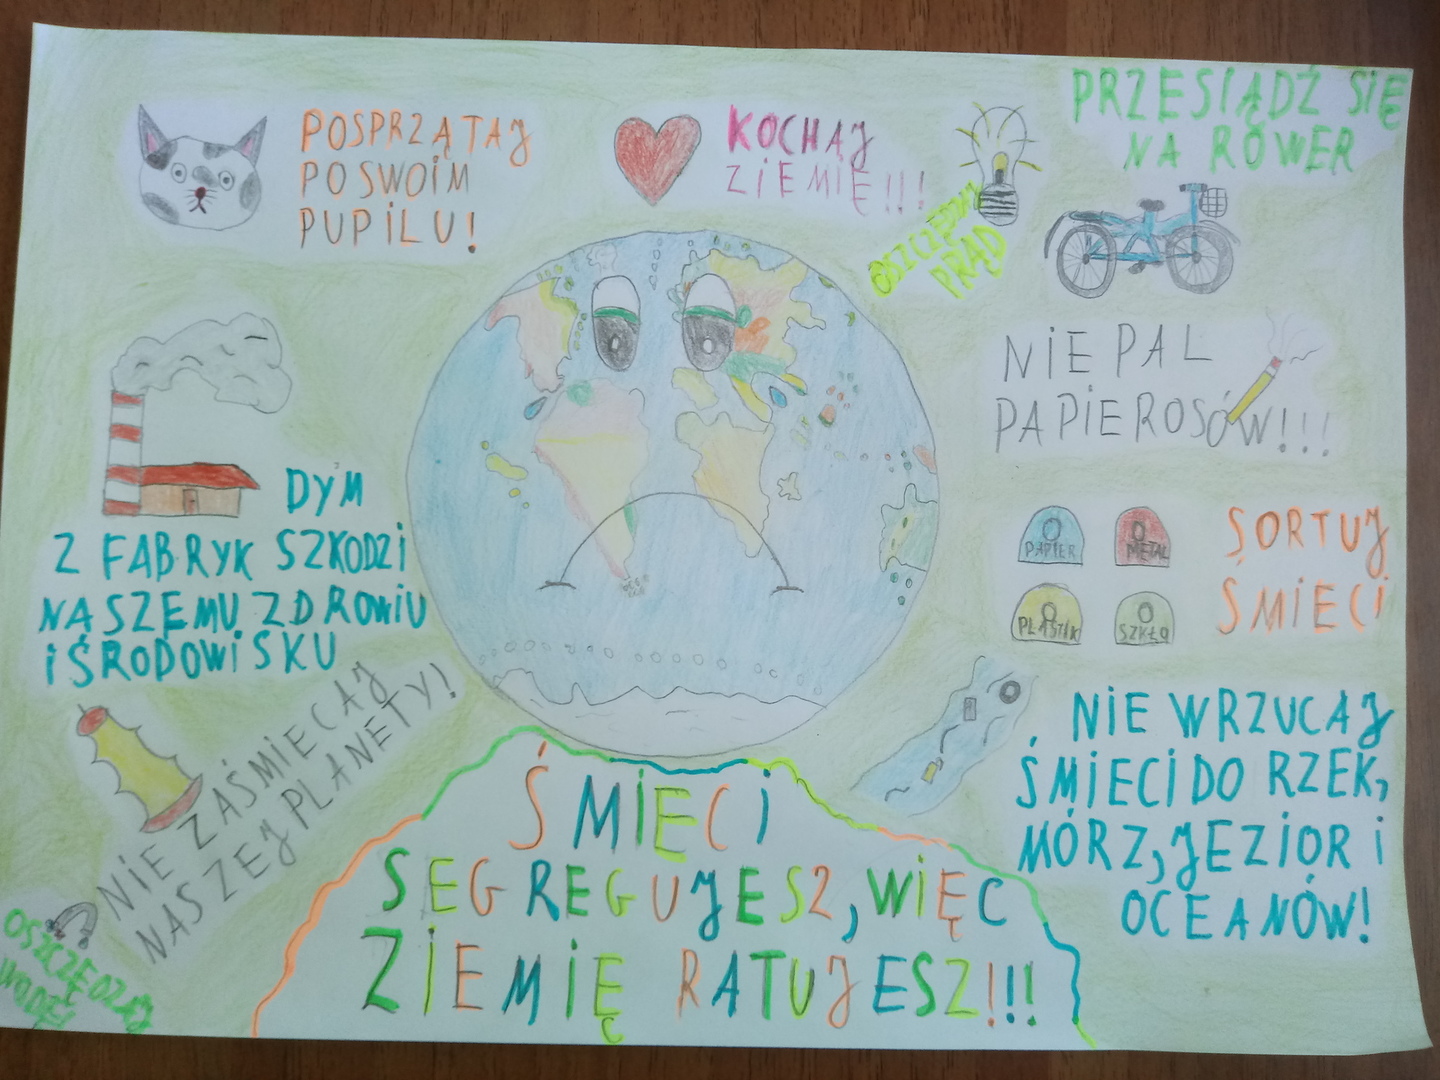 POSPRZĄTAJ
PO SWOIM
PUPILU!
KOCHAJ
ZIEMIĘ!!!
OSZCZĘDZAJ
PRĄD
PRZESIĄDŹ SIĘ
NA ROWER
NIE PAL
PAPIEROSÓW!!!
DYM
Z FABRYK SZKODZI
NASZEMU ZDROWIU
I ŚRODOWISKU
PAPIER
METAL
PLASTIK
SZKŁO
SORTUJ
ŚMIECI
NIE ZAŚMIECAJ
NASZEJ PLANETY!
NIE WRZUCAJ
ŚMIECI DO RZEK,
MÓRZ, JEZIOR i
OCEANÓW!
OSZCZĘDZAJ
WODĘ!
ŚMIECI
SEGREGUJESZ, WIĘC
ZIEMIĘ RATUJESZ!!!